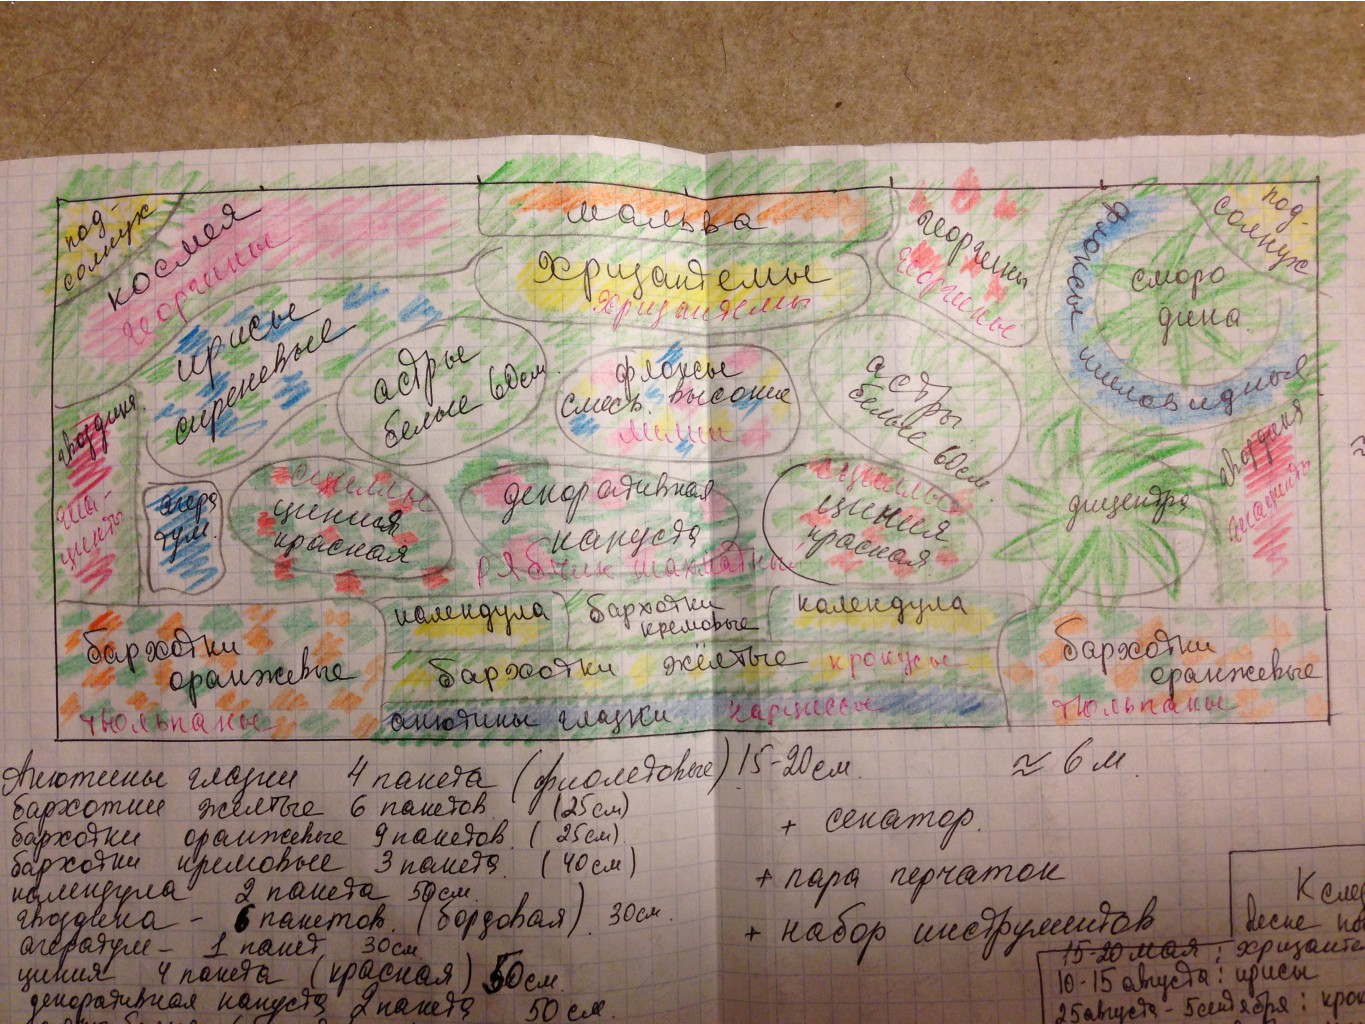 под-
солнух
космея
георгины
мальва
хризантемы
хризантемы
георгины
георгины
флоксы шиловидные
сморо
дина
под-
солнух
ирисы
сиреневые
астры
белые 60см.
флоксы
смесь. высокие
лилии
астры
белые 60см.
гвоздика
гиа-
цинты
агера
тум.
сциллы
цинния
красная
декоративная
капуста
рябчик шахматный
сциллы
циния
красная
дицентра
гвоздика
гиацинты
бархотки
оранжевые
тюльпаны
календула
бархотки
кремовые
календула
бархотки жёлтые крокусы
анютины глазки нарциссы
бархотки
оранжевые
тюльпаны
Анютины глазки 4 пакета (фиолетовые) 15-20см.
бархотки жёлтые 6 пакетов. (25см)
бархотки оранжевые 9 пакетов. (25см)
бархотки кремовые 3 пакета. (40см)
календула 2 пакета 50см.
гвоздика - 6 пакетов. (бордовая). 30см.
агератум - 1 пакет 30см
циния 4 пакета (красная) 50см.
декоративная капуста 2 пакета 50см.
≈ 6 м.
+ секатор.
+ пара перчаток
+ набор инструментов
К сле
весне по
15-20 мая: хризанте
10-15 августа: ирисы
25августа-5сентября: крок